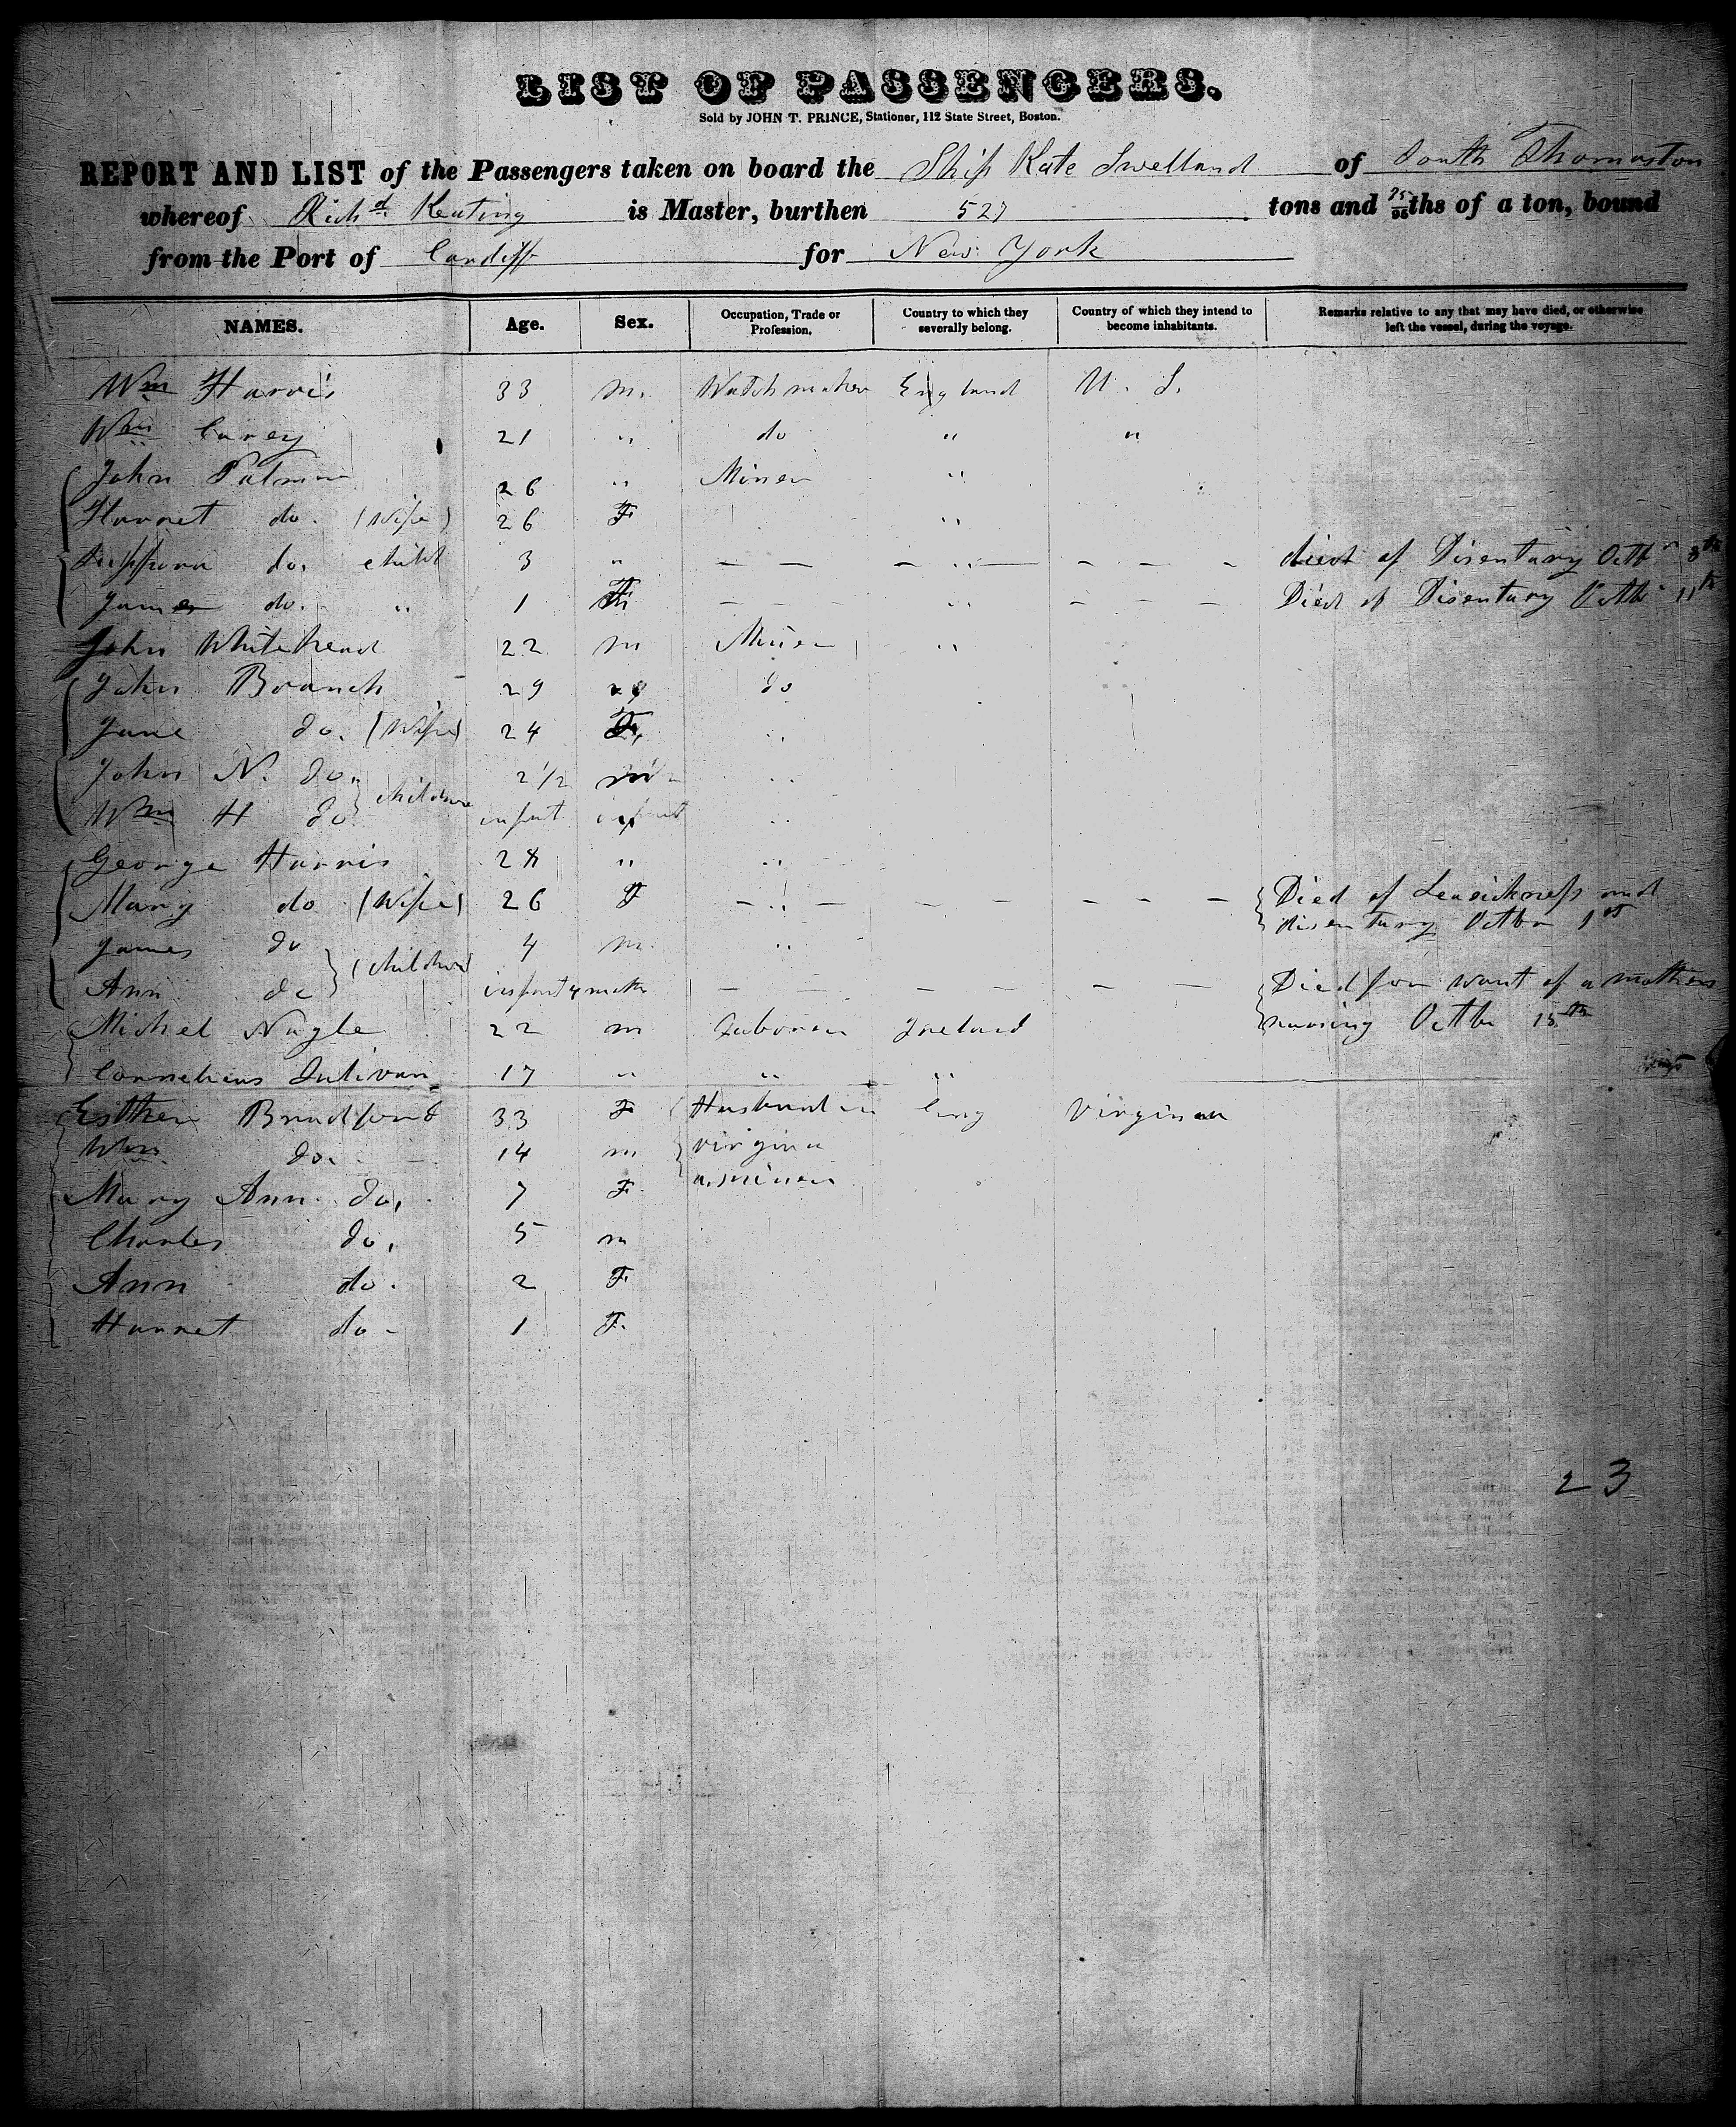 LIST OF PASSENGERS.
Sold by JOHN T. PRINCE, Stationer, 112 State Street, Boston.
REPORT AND LIST of the Passengers taken on board the Ship Kate Swetland of South Thomaston
whereof Richd Keating is Master, burthen 527 tons and 75/95ths of a ton, bound
from the Port of Cardiff for New York
NAMES. Age. Sex. Occupation, Trade or Profession. Country to which they severally belong. Country of which they intend to become inhabitants. Remarks relative to any that may have died, or otherwise left the vessel, during the voyage.
Wm Harris 33 m. Watch maker England U. S.
Wm Carey 21 " do " "
John Palmer 26 " Miner "
Harret do. (Wife) 26 F "
do. child 3 " — — — " — — — — died of Disentary Octbr 8th
James do. " 1 — — — " — — — Died of Disentary Octbr 11th
John Whitehead 22 m Miner "
John Branch 29 " do
Jane do. (Wife) 24 F. "
John N. do. 2 1/2 m "
children
Wm H do infant infant "
George Harris 28 " "
Mary do (Wife) 26 F — " — — — — — — — Died of Seasickness and
disentary Octbr 1st
James do 4 m. "
(children)
Ann do infant 4 mths — — — — — — — Died for want of a mothers
Michel Nagle 22 m Laborer Ireland nursing Octbr 15th
Cornelieus Sulivan 17 " " "
Esther Bradford 33 F Husband in Eng Virginia
Wm do. 14 m virginia
Mary Ann do. 7 F. a miner
Charles do. 5 m
Ann do. 2 F.
Harret do - 1 F.
23